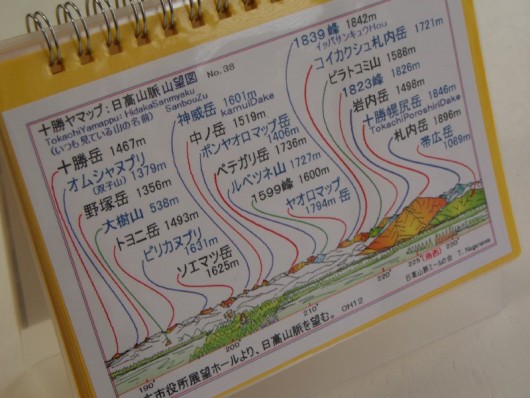 十勝ヤマップ：日高山脈山望図 No.38
TokachiYamappu: HidakaSanmyaku SanbouZu
(いつも見ている山の名前)
十勝岳 1467m
オムシャヌプリ
(双子山) 1379m
野塚岳 1356m
大樹山 538m
トヨニ岳 1493m
ピリカヌプリ
1631m
ソエマツ岳
1625m
神威岳 1601m
kamuiDake
中ノ岳 1519m
ポンヤオロマップ岳
1406m
ペテガリ岳 1736m
ルベツネ山 1727m
1599峰 1600m
ヤオロマップ
1794m 岳
1839峰 1842m
イッパサンキュウHou
コイカクシュ札内岳 1721m
ピラトコミ山 1588m
1823峰 1826m
岩内岳 1498m
十勝幌尻岳 1846m
TokachiPoroshiriDake
札内岳 1896m
帯広岳
1089m
190
200
210
220
225(南西)
230
市役所展望ホールより、日高山脈を望む。 OH12
日高山脈ミールの会 T. Nagasawa